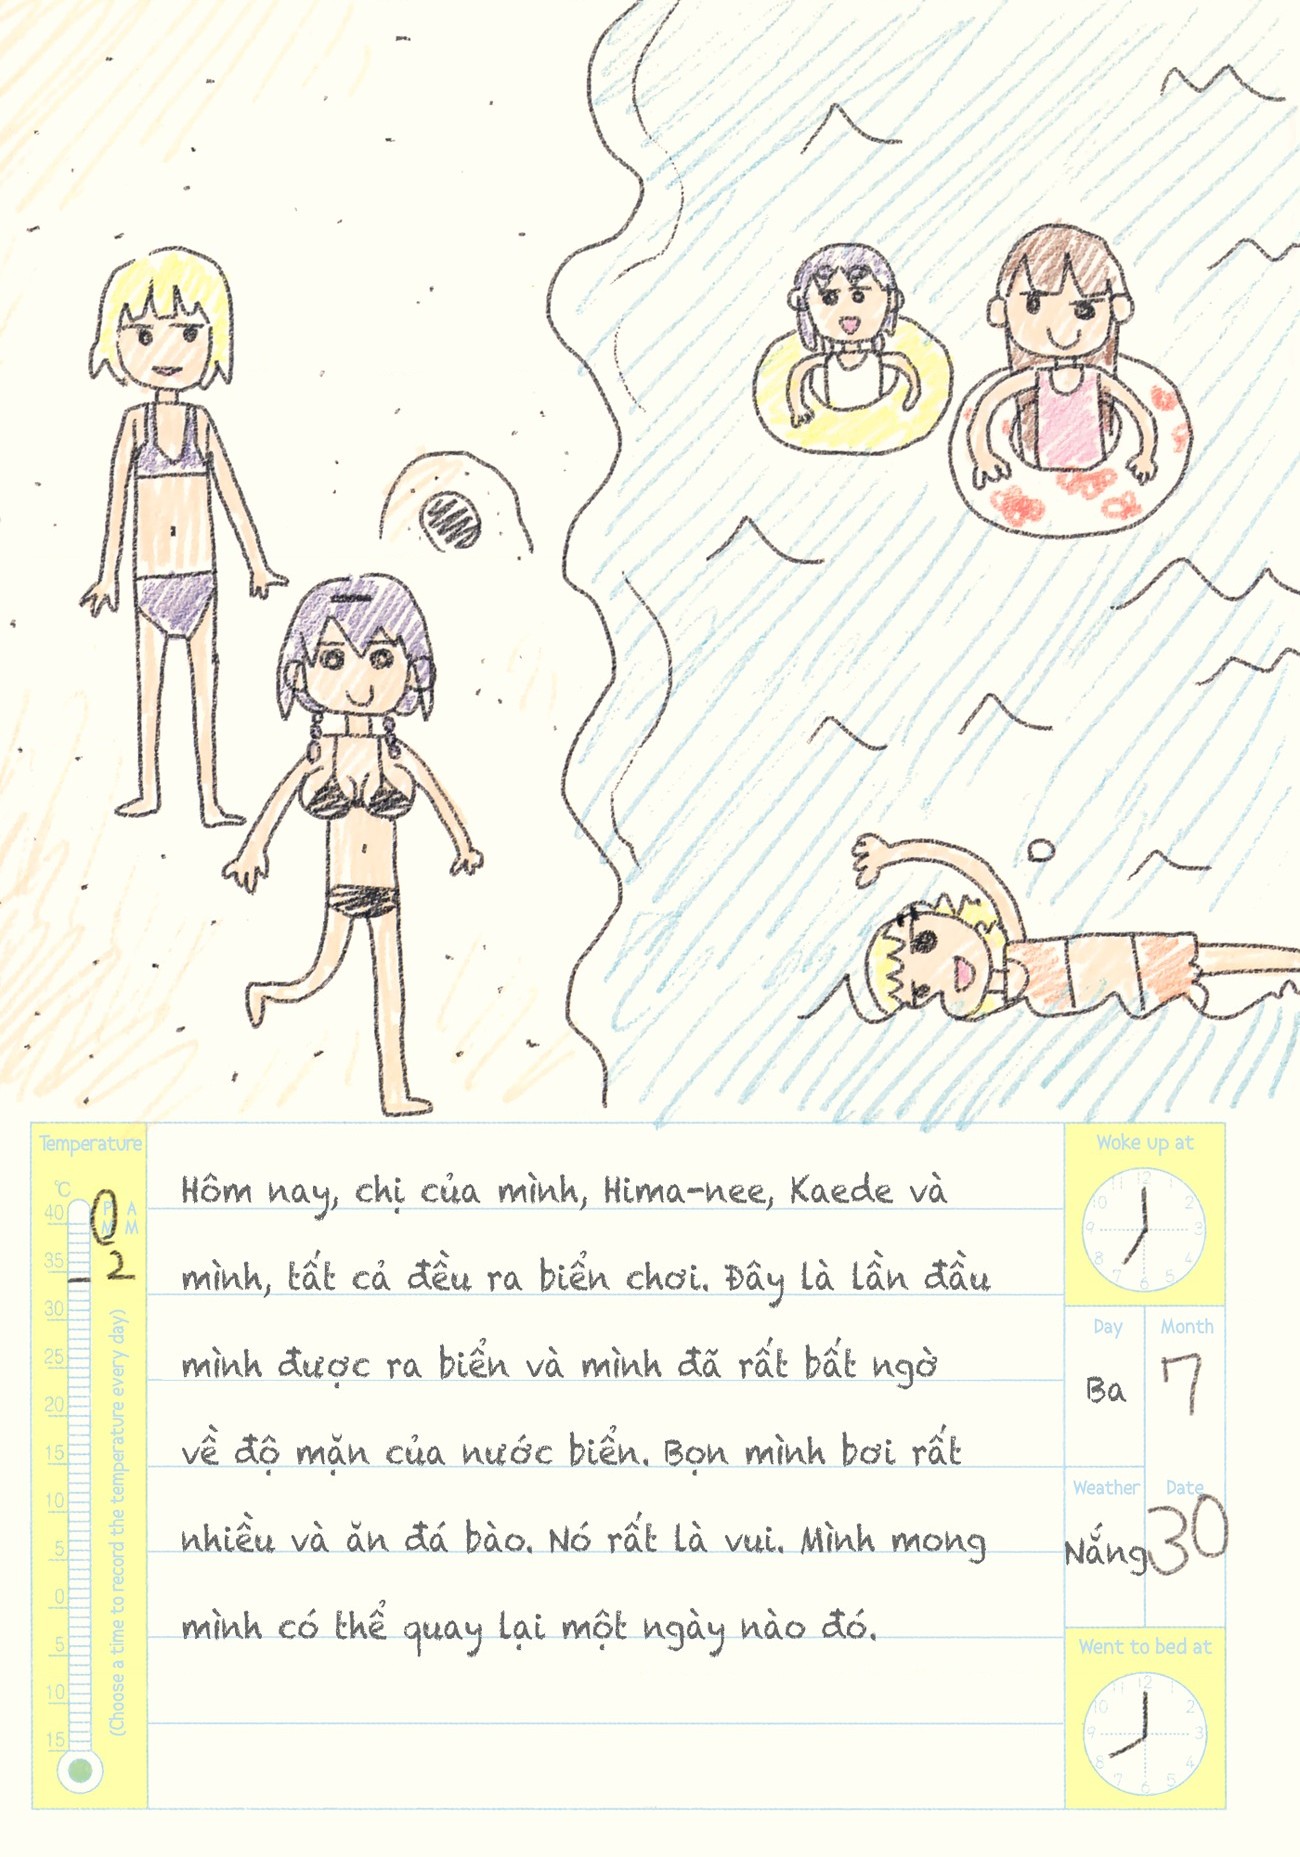 Temperature
°C
40
35
30
25
20
15
10
5
0
5
10
15
P M
A M
2
(Choose a time to record the temperature every day)
Hôm nay, chị của mình, Hima-nee, Kaede và
mình, tất cả đều ra biển chơi. Đây là lần đầu
mình được ra biển và mình đã rất bất ngờ
về độ mặn của nước biển. Bọn mình bơi rất
nhiều và ăn đá bào. Nó rất là vui. Mình mong
mình có thể quay lại một ngày nào đó.
Woke up at
12
1
2
3
4
5
6
7
8
9
10
11
Day
Ba
Month
7
Weather
Nắng
Date
30
Went to bed at
12
1
2
3
4
5
6
7
8
9
10
11